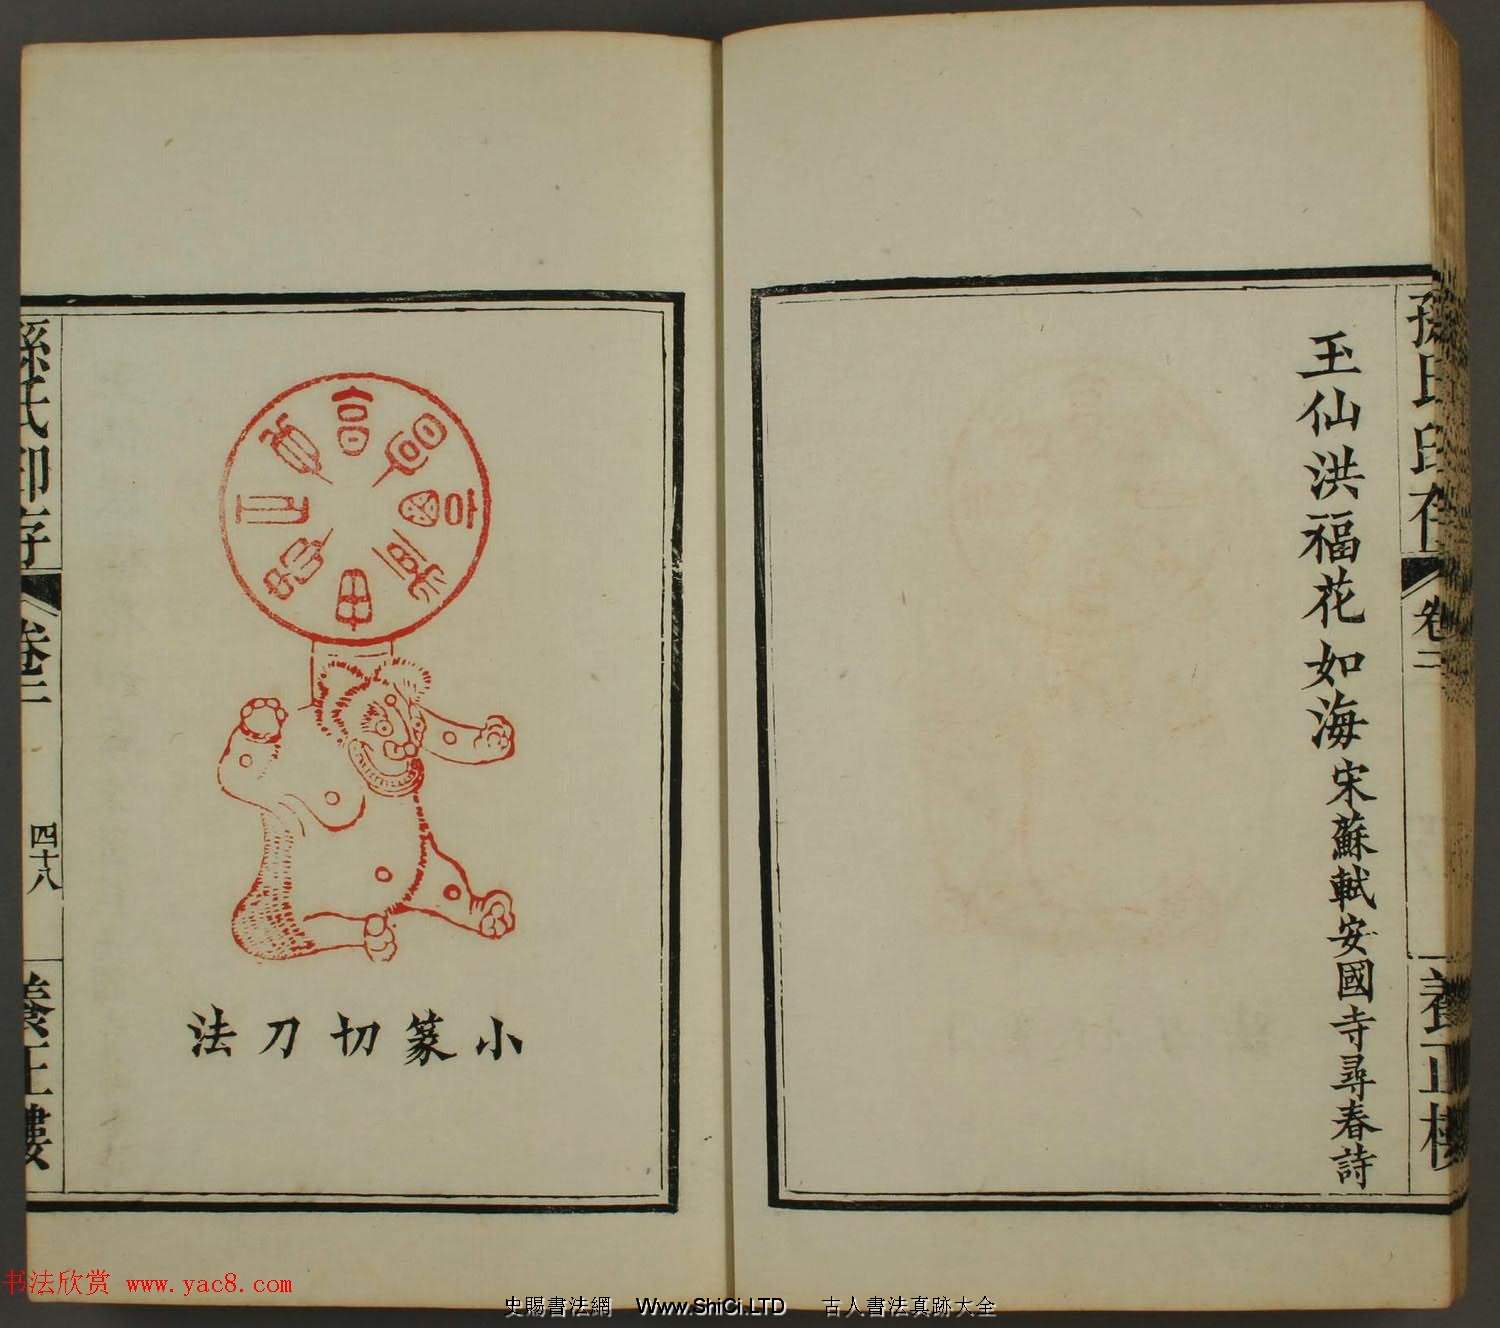 孫氏印存
卷二
養正樓
玉仙洪福花如海宋蘇軾安國寺尋春詩
小篆切刀法
孫氏印存
卷二
四十八
養正樓
书法欣赏 www.yac8.com
史賜書法網 Www.ShiCi.LTD 古人書法真跡大全